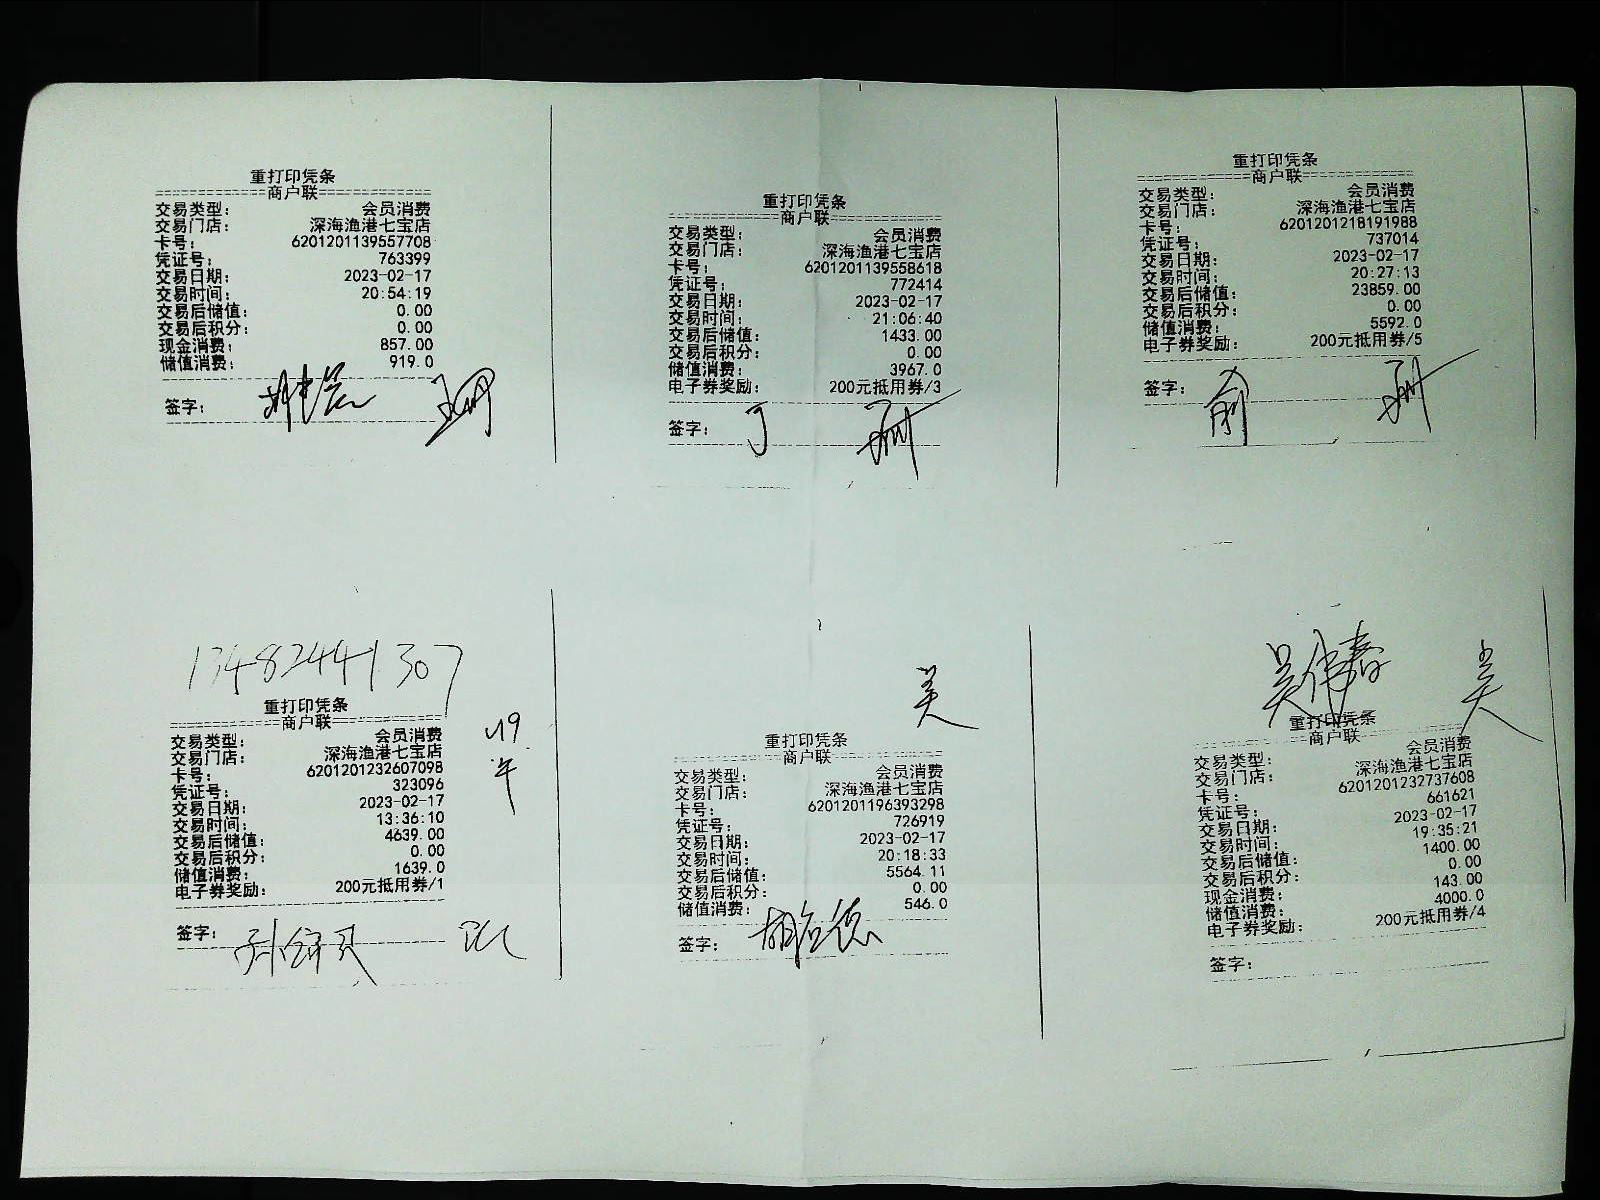 重打印凭条
==========商户联==========
交易类型: 会员消费
交易门店: 深海渔港七宝店
卡号: 6201201139557708
凭证号: 763399
交易日期: 2023-02-17
交易时间: 20:54:19
交易后储值: 0.00
交易后积分: 0.00
现金消费: 857.00
储值消费: 919.0
签字:
重打印凭条
==========商户联==========
交易类型: 会员消费
交易门店: 深海渔港七宝店
卡号: 6201201139558618
凭证号: 772414
交易日期: 2023-02-17
交易时间: 21:06:40
交易后储值: 1433.00
交易后积分: 0.00
储值消费: 3967.0
电子券奖励: 200元抵用券/3
签字: 丁
重打印凭条
==========商户联==========
交易类型: 会员消费
交易门店: 深海渔港七宝店
卡号: 6201201218191988
凭证号: 737014
交易日期: 2023-02-17
交易时间: 20:27:13
交易后储值: 23859.00
交易后积分: 0.00
储值消费: 5592.0
电子券奖励: 200元抵用券/5
签字: 俞
13482441307
重打印凭条
==========商户联==========
交易类型: 会员消费
交易门店: 深海渔港七宝店
卡号: 6201201232607098
凭证号: 323096
交易日期: 2023-02-17
交易时间: 13:36:10
交易后储值: 4639.00
交易后积分: 0.00
储值消费: 1639.0
电子券奖励: 200元抵用券/1
签字:
吴
重打印凭条
==========商户联==========
交易类型: 会员消费
交易门店: 深海渔港七宝店
卡号: 6201201196393298
凭证号: 726919
交易日期: 2023-02-17
交易时间: 20:18:33
交易后储值: 5564.11
交易后积分: 0.00
储值消费: 546.0
签字:
吴伟春 吴
重打印凭条
==========商户联==========
交易类型: 会员消费
交易门店: 深海渔港七宝店
卡号: 6201201232737608
凭证号: 661621
交易日期: 2023-02-17
交易时间: 19:35:21
交易后储值: 1400.00
交易后积分: 0.00
现金消费: 143.00
储值消费: 4000.0
电子券奖励: 200元抵用券/4
签字: